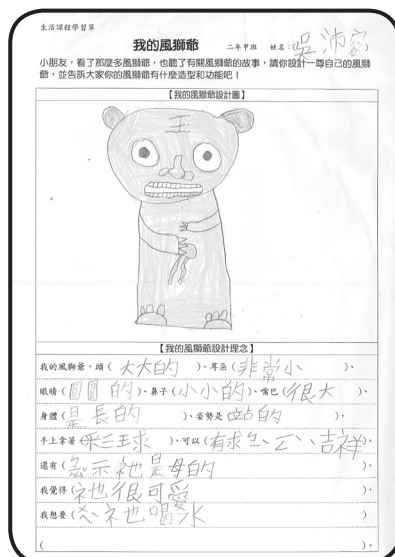 生活課程學習單
我的風獅爺 二年甲班 姓名：(吳沛容)
小朋友，看了那麼多風獅爺，也聽了有關風獅爺的故事，請你設計一尊自己的風獅
爺，並告訴大家你的風獅爺有什麼造型和功能吧！
【我的風獅爺設計圖】
王
【我的風獅爺設計理念】
我的風獅爺，頭(大大的)、耳朵(非常小)、
眼睛(圓圓的)、鼻子(小小的)、嘴巴(很大)、
身體(是長的)、姿勢是(站的)、
手上拿著(彩球)、可以(有求ㄅㄧˋ吉祥)、
還有(表示祂是母的)、
我覺得(祂很可愛)、
我想要(祂喝水)
( )。